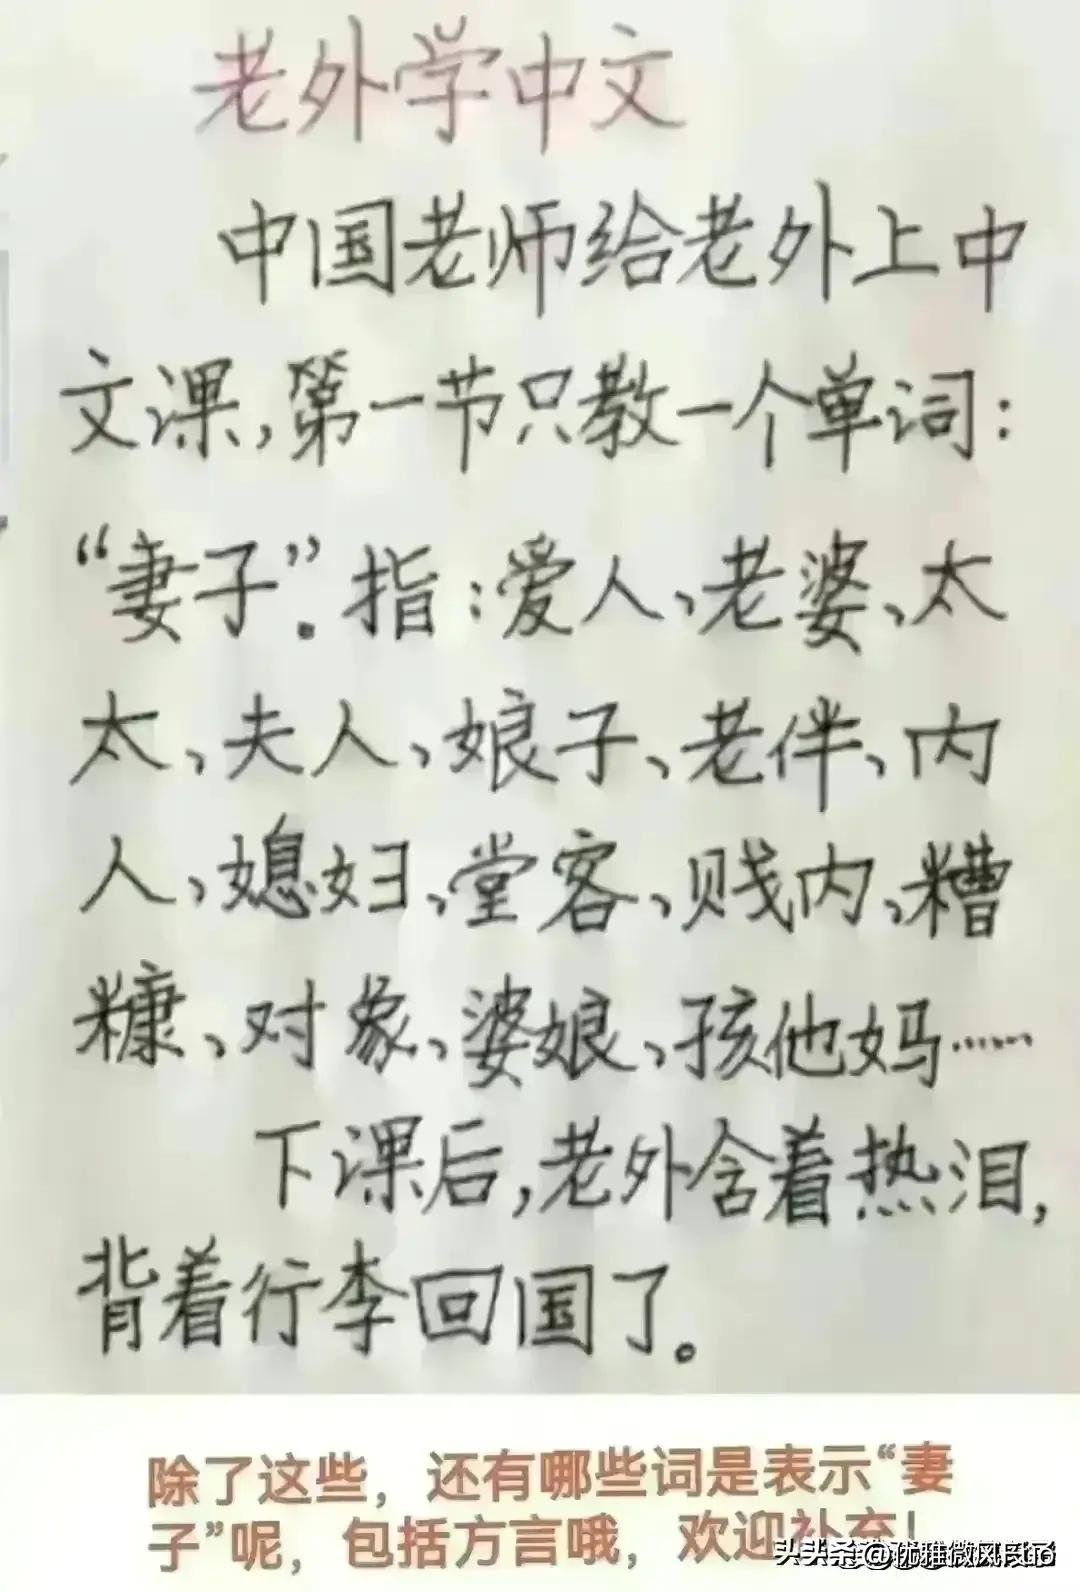 老外学中文
中国老师给老外上中
文课,第一节只教一个单词:
“妻子”。指:爱人、老婆、太
太、夫人、娘子、老伴、内
人、媳妇、堂客、贱内、糟
糠、对象、婆娘、孩他妈……
下课后,老外含着热泪,
背着行李回国了。
除了这些，还有哪些词是表示“妻
子”呢，包括方言哦，欢迎补充！
头条@优雅微风